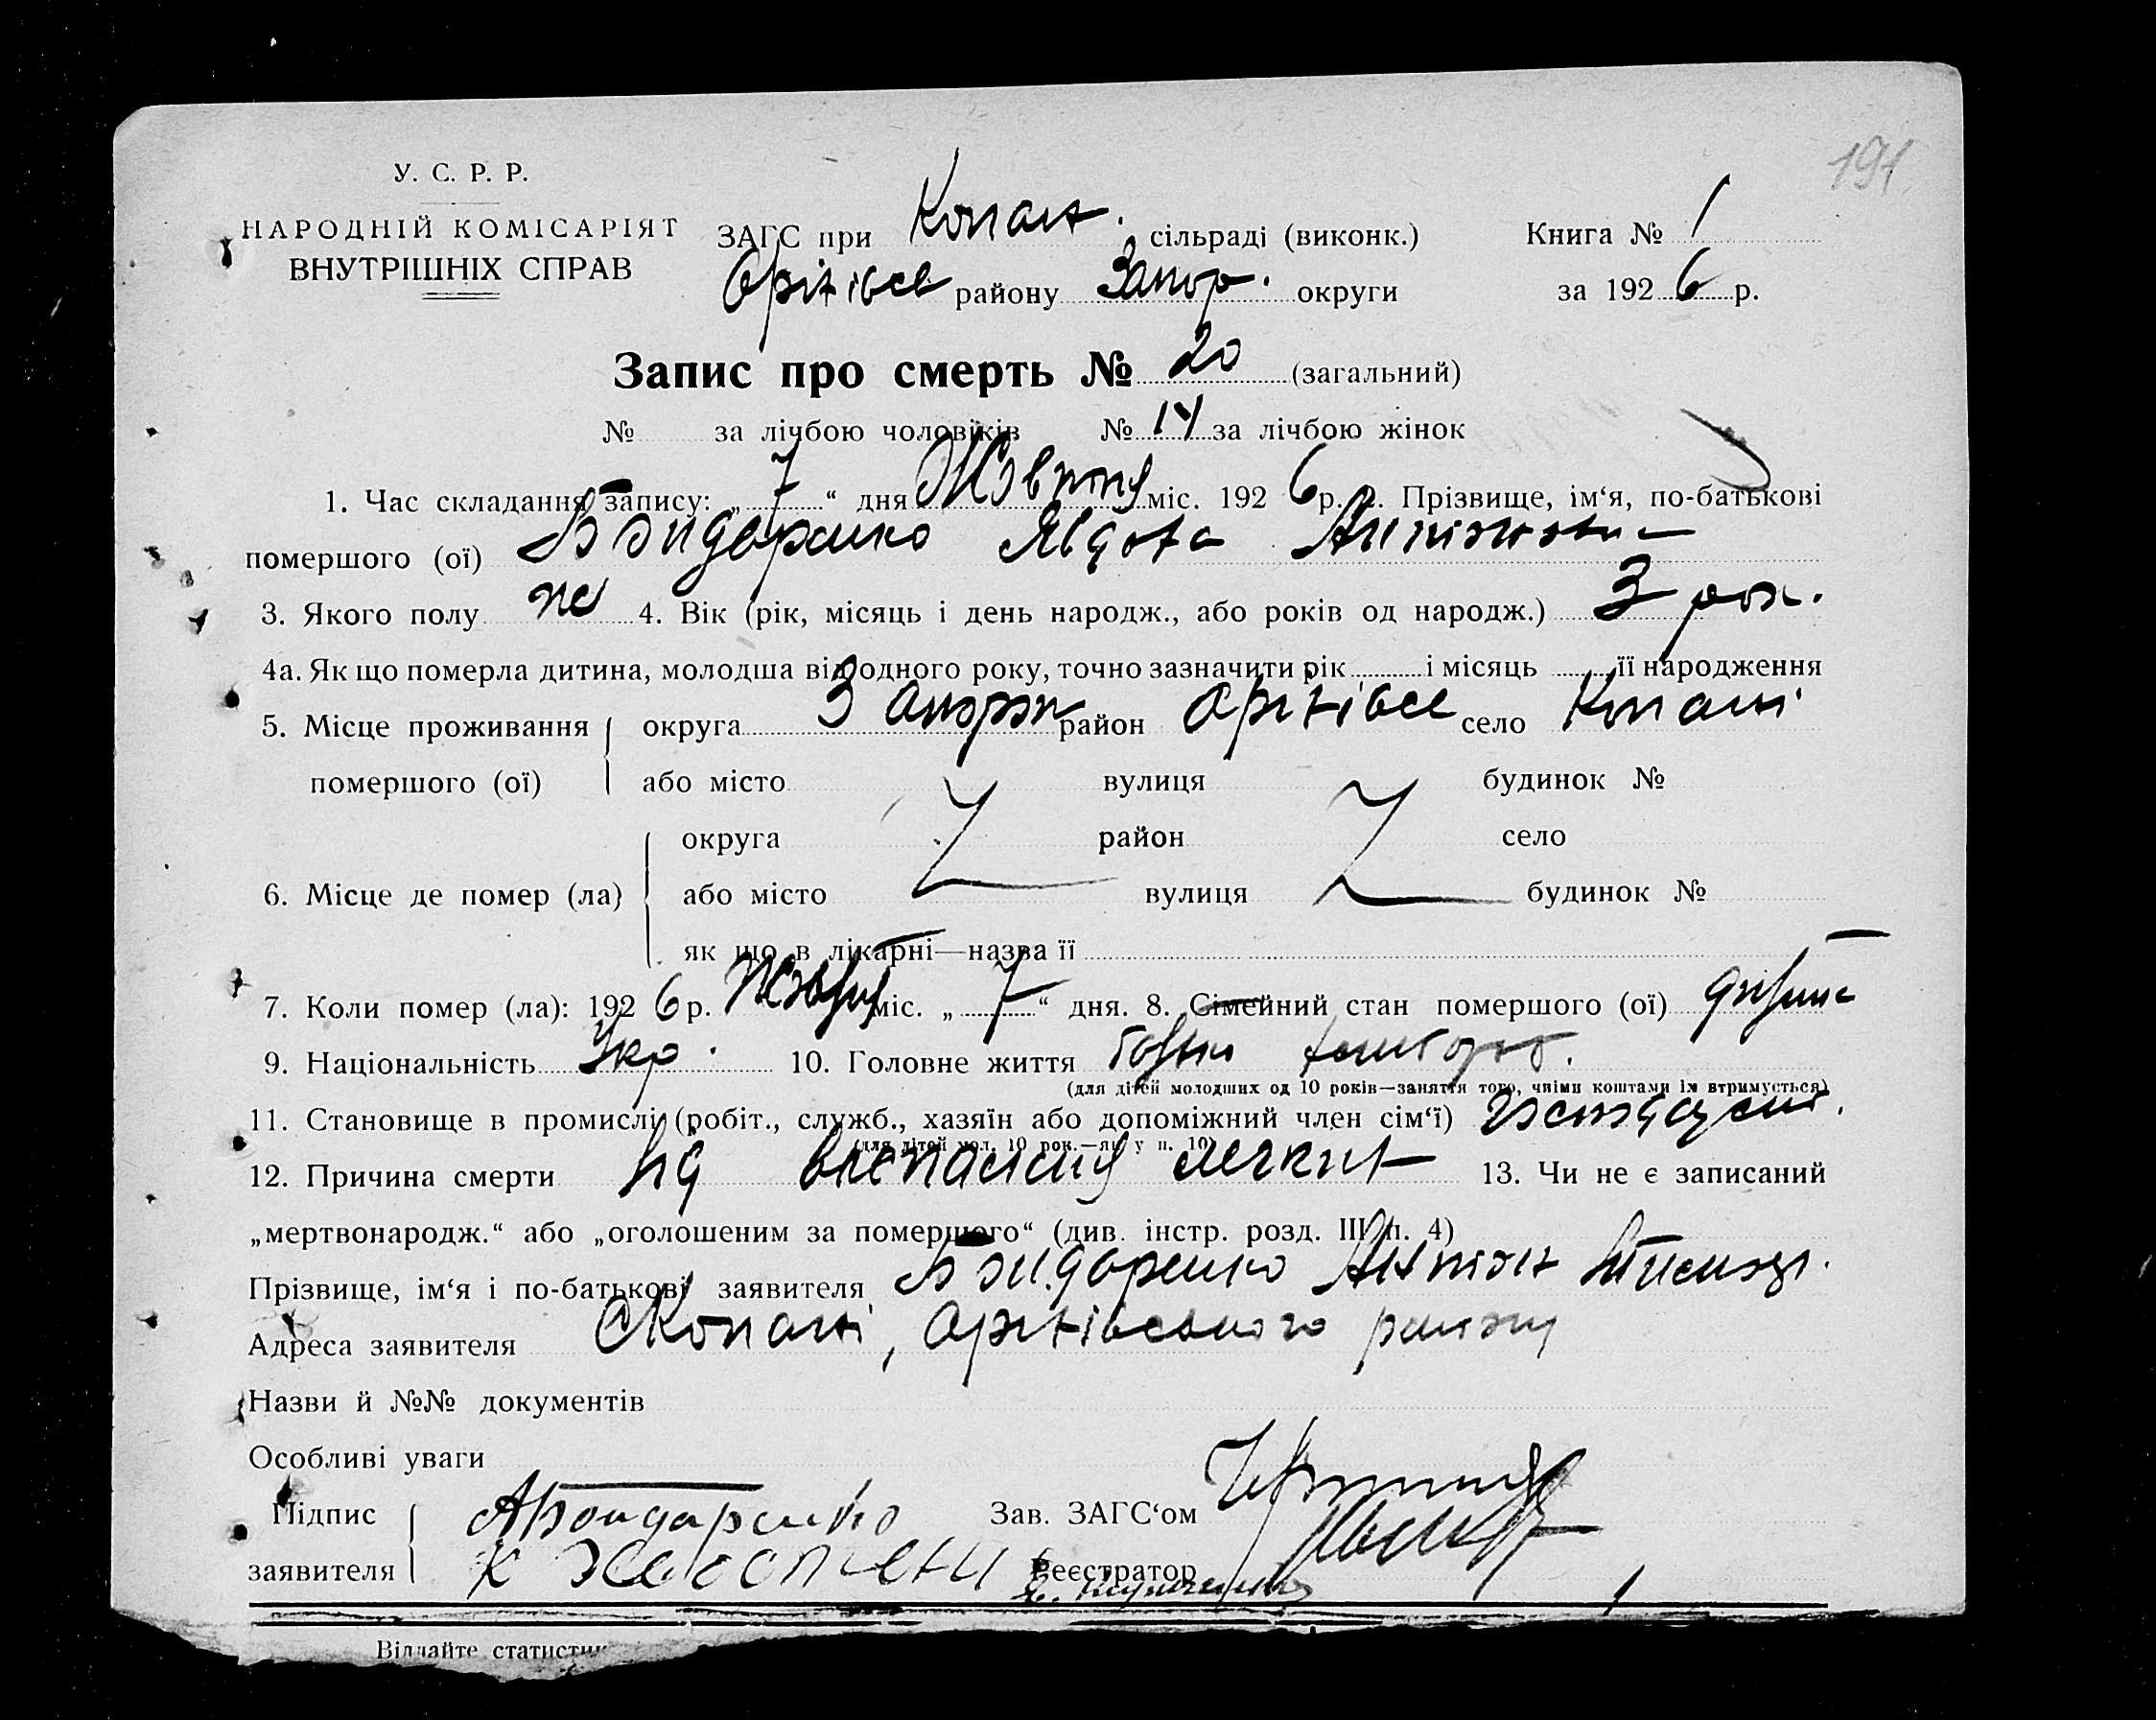 191
У. С. Р. Р.
НАРОДНІЙ КОМІСАРІЯТ
ВНУТРІШНІХ СПРАВ
ЗАГС при Копан. сільраді (виконк.)
Оріхівсь району Запор. округи
Книга № 1
за 1926 р.
Запис про смерть № 20 (загальний)
№ за лічбою чоловіків № 14 за лічбою жінок
1. Час складання запису: „7“ дня Жовтня міс. 1926 р. 2. Прізвище, ім‘я, по-батькові
помершого (ої) Бондаренко Явдоха Антоновна
3. Якого полу ж 4. Вік (рік, місяць і день народж., або років од народж.) 3 рок.
4а. Як що померла дитина, молодша від одного року, точно зазначити рік і місяць її народження
5. Місце проживання округа Запорож район Оріхівсь село Копані
помершого (ої) або місто вулиця будинок №
округа район село
6. Місце де помер (ла) або місто вулиця будинок №
як що в лікарні—назва її
7. Коли помер (ла): 1926 р. Жовтня міс. „7“ дня. 8. Сімейний стан помершого (ої) дитина
9. Національність Укр. 10. Головне життя
(для дітей молодших од 10 років—заняття того, чиїми коштами їх втримується)
11. Становище в промислі (робіт., служб., хазяїн або допоміжний член сім‘ї)
(для дітей мол. 10 рок.—як у п. 10)
12. Причина смерти від воспаления 13. Чи не є записаний
„мертвонародж.“ або „оголошеним за помершого“ (див. інстр. розд. III п. 4)
Прізвище, ім‘я і по-батькові заявителя Бондаренко Антон
Адреса заявителя с Копані, Оріхівського району
Назви й №№ документів
Особливі уваги
Підпис
заявителя
А Бондаренко
Зав. ЗАГС‘ом
Реєстратор
Віддайте статисти